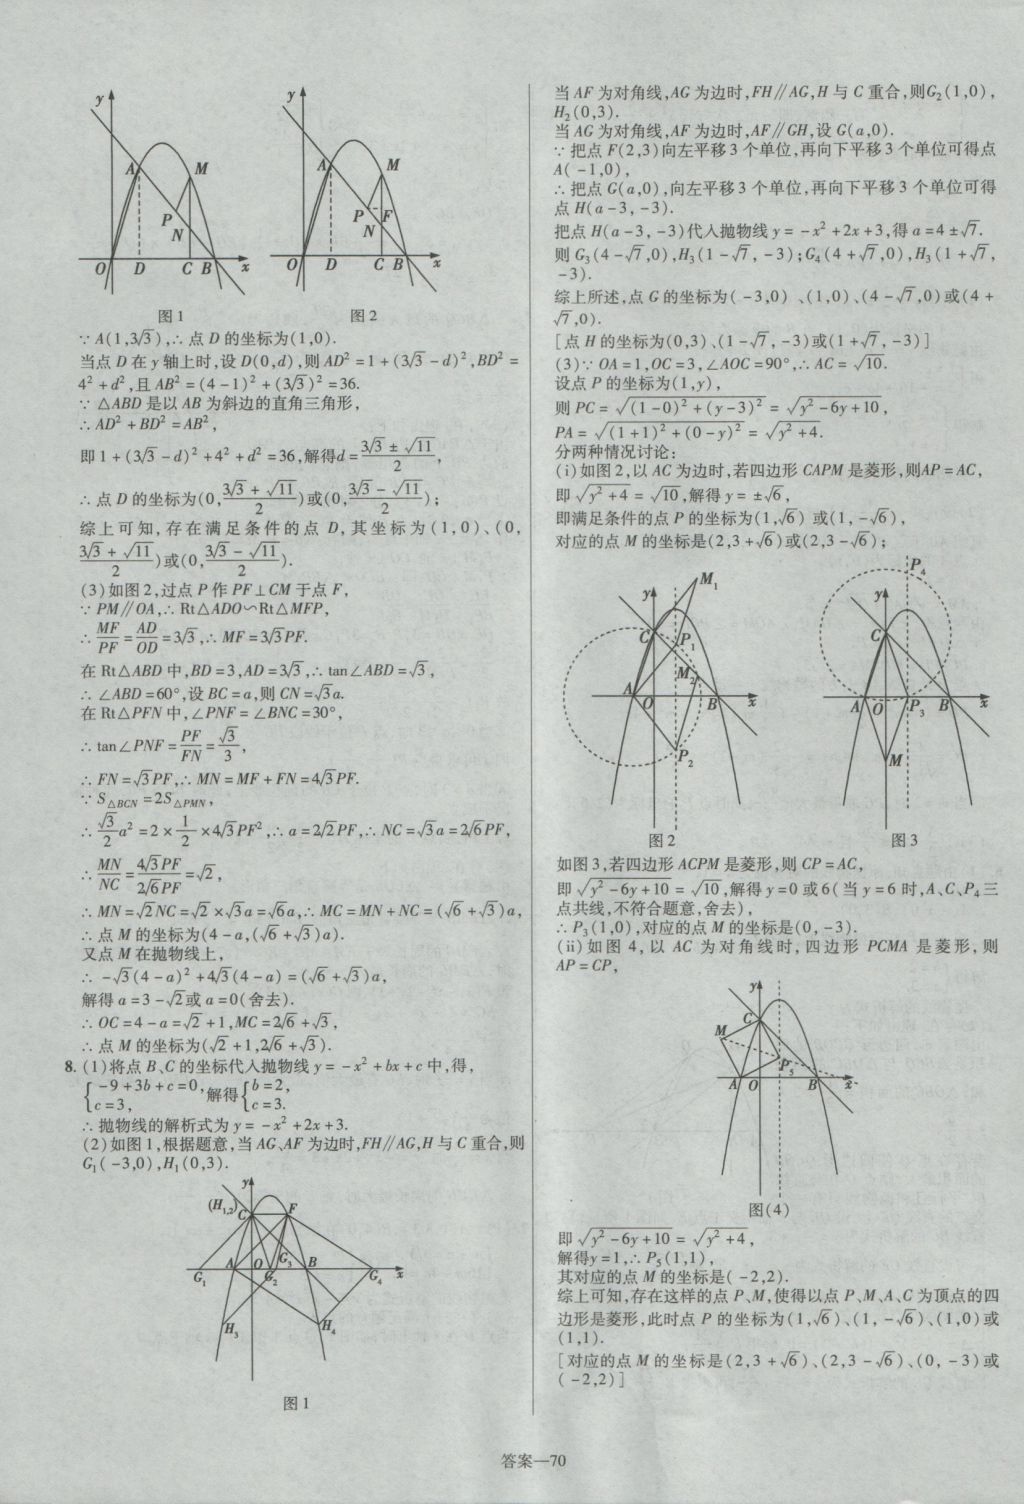 y
y
A
M
A
M
P
N
P
F
N
O
D
C
B
x
O
D
C
B
x
图1
图2
∵A(1,3√3),∴点D的坐标为(1,0).
当点D在y轴上时,设D(0,d),则AD²=1+(3√3-d)²,BD²=
4²+d²,且AB²=(4-1)²+(3√3)²=36.
∵△ABD是以AB为斜边的直角三角形,
∴AD²+BD²=AB²,
即1+(3√3-d)²+4²+d²=36,解得d=(3√3±√11)/2,
∴点D的坐标为(0,(3√3+√11)/2)或(0,(3√3-√11)/2);
综上可知,存在满足条件的点D,其坐标为(1,0)、(0,
(3√3+√11)/2)或(0,(3√3-√11)/2).
(3)如图2,过点P作PF⊥CM于点F,
∵PM∥OA,∴Rt△ADO∽Rt△MFP,
∴MF/PF=AD/OD=3√3,∴MF=3√3PF.
在Rt△ABD中,BD=3,AD=3√3,∴tan∠ABD=√3,
∴∠ABD=60°,设BC=a,则CN=√3a.
在Rt△PFN中,∠PNF=∠BNC=30°,
∴tan∠PNF=PF/FN=√3/3,
∴FN=√3PF,∴MN=MF+FN=4√3PF.
∵S△BCN=2S△PMN,
∴√3/2a²=2×1/2×4√3PF²,∴a=2√2PF,∴NC=√3a=2√6PF,
∴MN/NC=4√3PF/2√6PF=√2,
∴MN=√2NC=√2×√3a=√6a,∴MC=MN+NC=(√6+√3)a,
∴点M的坐标为(4-a,(√6+√3)a).
又点M在抛物线上,
∴-√3(4-a)²+4√3(4-a)=(√6+√3)a,
解得a=3-√2或a=0(舍去).
∴OC=4-a=√2+1,MC=2√6+√3,
∴点M的坐标为(√2+1,2√6+√3).
8.(1)将点B、C的坐标代入抛物线y=-x²+bx+c中,得,
{-9+3b+c=0, c=3, 解得{b=2, c=3.
∴抛物线的解析式为y=-x²+2x+3.
(2)如图1,根据题意,当AG、AF为边时,FH∥AG,H与C重合,则
G₁(-3,0),H₁(0,3).
y
(H₁,₂)
C
F
G₁
A
O
G₂
G₃
B
G₄
x
H₃
H₄
图1
当AF为对角线,AG为边时,FH∥AG,H与C重合,则G₂(1,0),
H₂(0,3).
当AG为对角线,AF为边时,AF∥GH,设G(a,0).
∵把点F(2,3)向左平移3个单位,再向下平移3个单位可得点
A(-1,0),
∴把点G(a,0),向左平移3个单位,再向下平移3个单位可得
点H(a-3,-3).
把点H(a-3,-3)代入抛物线y=-x²+2x+3,得a=4±√7.
则G₃(4-√7,0),H₃(1-√7,-3);G₄(4+√7,0),H₃(1+√7,
-3).
综上所述,点G的坐标为(-3,0)、(1,0)、(4-√7,0)或(4+
√7,0).
[点H的坐标为(0,3)、(1-√7,-3)或(1+√7,-3)]
(3)∵OA=1,OC=3,∠AOC=90°,∴AC=√10.
设点P的坐标为(1,y),
则PC=√((1-0)²+(y-3)²)=√(y²-6y+10),
PA=√((1+1)²+(0-y)²)=√(y²+4).
分两种情况讨论:
(i)如图2,以AC为边时,若四边形CAPM是菱形,则AP=AC,
即√(y²+4)=√10,解得y=±√6,
即满足条件的点P的坐标为(1,√6)或(1,-√6),
对应的点M的坐标是(2,3+√6)或(2,3-√6);
y
M₁
C
P₁
M₂
A
O
B
x
P₂
图2
P₄
y
C
A
O
P₃
B
x
M
图3
如图3,若四边形ACPM是菱形,则CP=AC,
即√(y²-6y+10)=√10,解得y=0或6(当y=6时,A、C、P₄三
点共线,不符合题意,舍去),
∴P₃(1,0),对应的点M的坐标是(0,-3).
(ii)如图4,以AC为对角线时,四边形PCMA是菱形,则
AP=CP,
y
C
M
P₅
A
O
B
x
图(4)
即√(y²-6y+10)=√(y²+4),
解得y=1,∴P₅(1,1),
其对应的点M的坐标是(-2,2).
综上可知,存在这样的点P、M,使得以点P、M、A、C为顶点的四
边形是菱形,此时点P的坐标为(1,√6)、(1,-√6)、(1,0)或
(1,1).
[对应的点M的坐标是(2,3+√6)、(2,3-√6)、(0,-3)或
(-2,2)]
答案—70